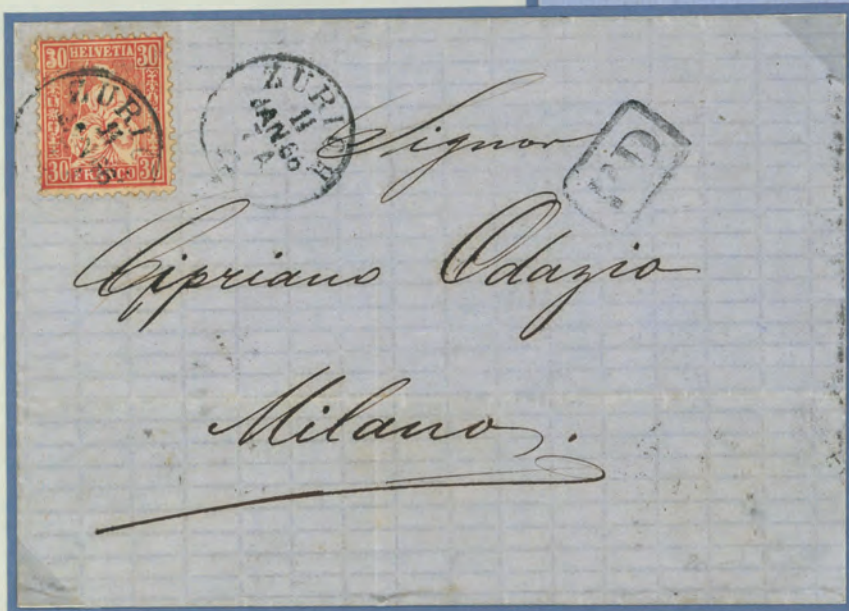 30 HELVETIA 30
30 FRANCO 30
ZURI
ZURICH
11
JAN 66
PD
Signor
Cipriano Odazio
Milano.